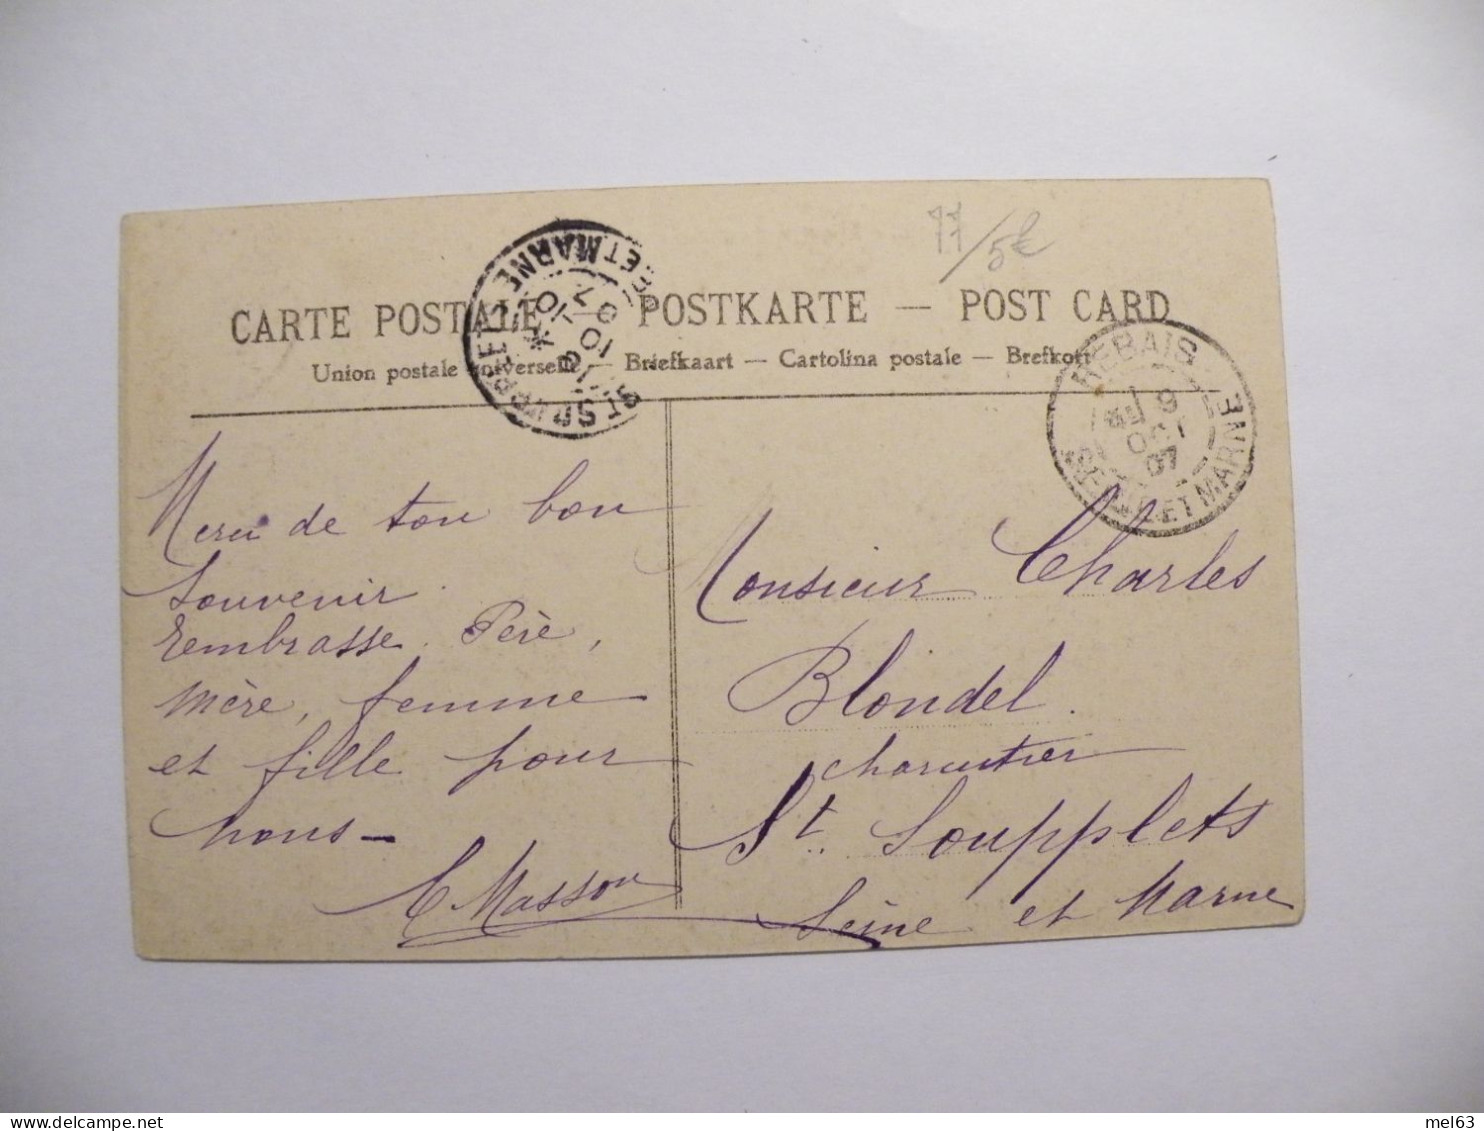 77/5€
CARTE POSTALE — POSTKARTE — POST CARD
Union postale universelle — Briefkaart — Cartolina postale — Brefkort
ST SOUPPLETS
10
10
07
SEINE ET MARNE
REBAIS
9
OCT
07
SEINE ET MARNE
Merci de ton bon
Souvenir.
Rembrasse Père,
mère, femme
et fille pour
nous —
C Masson
Monsieur Charles
Blondel.
charcutier
St. Soupplets
Seine et Marne
mel63